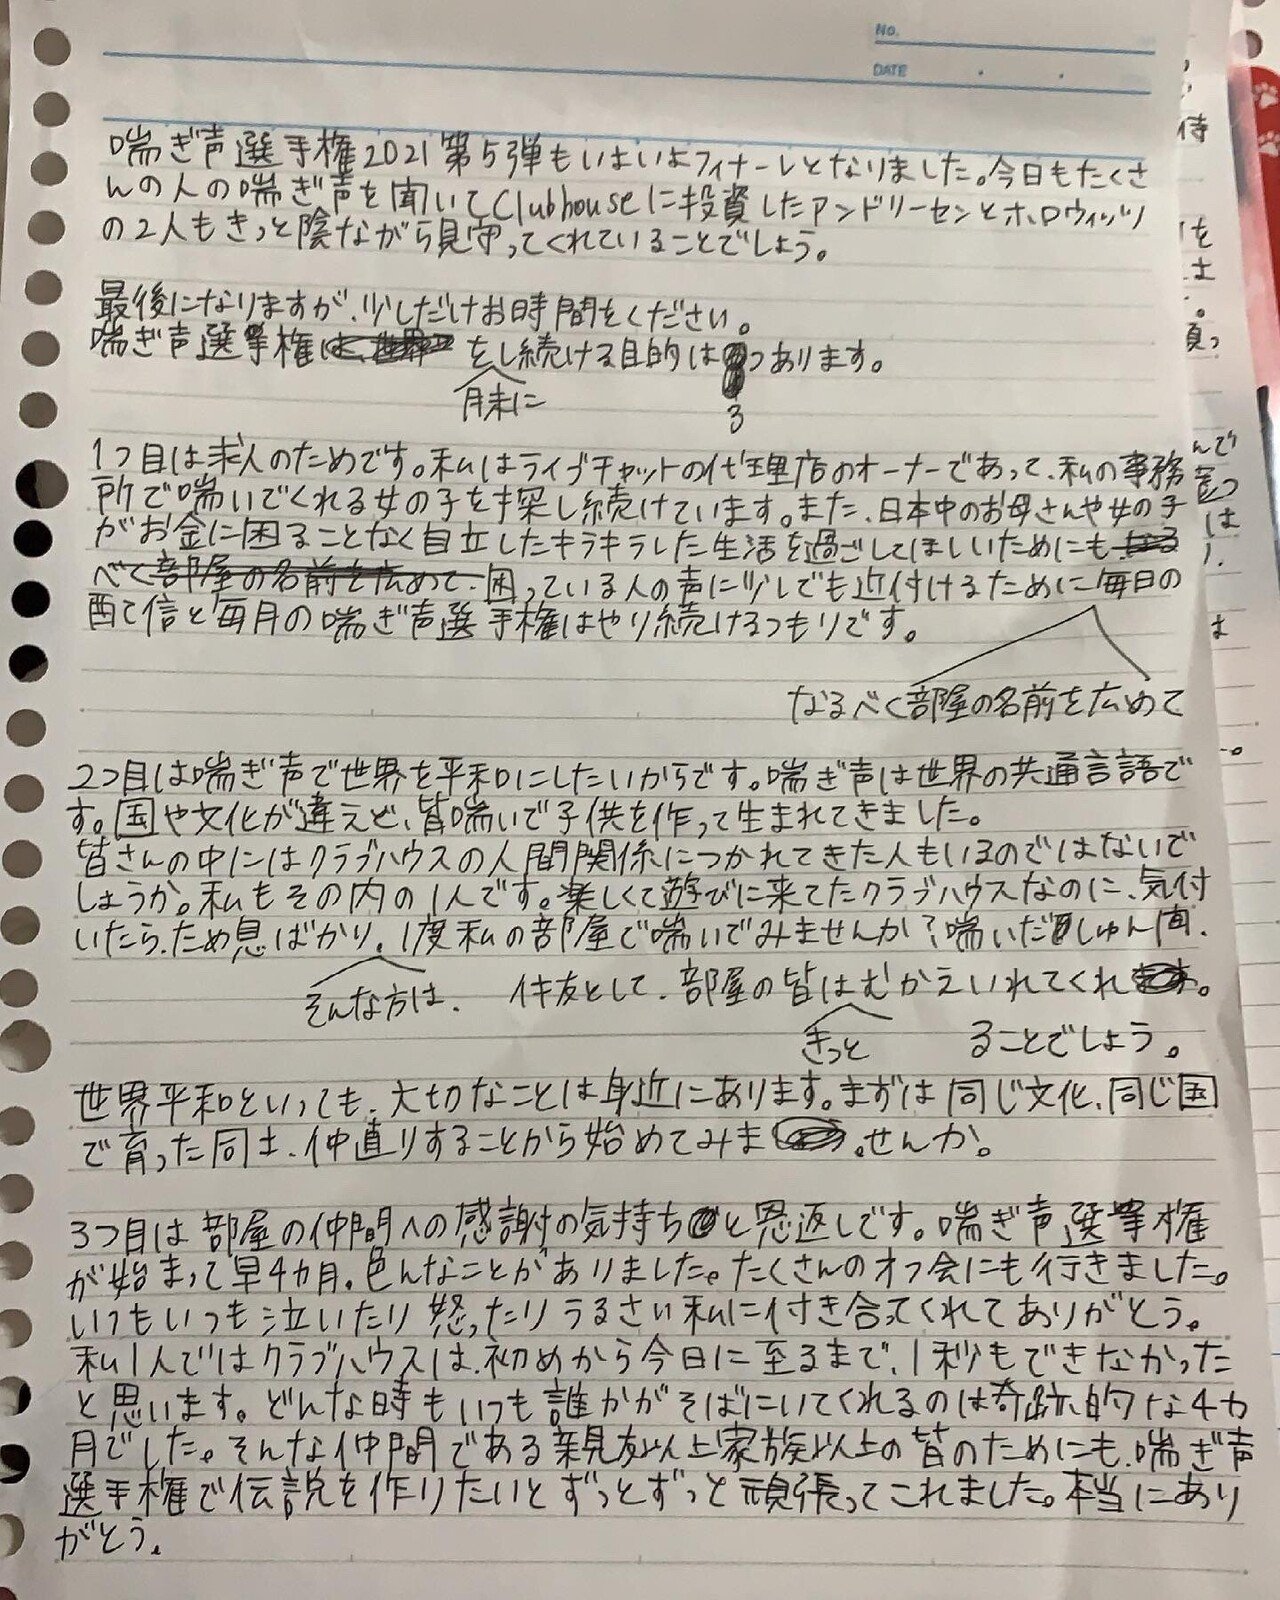 No.
DATE
喘ぎ声選手権2021第5弾もいよいよフィナーレとなりました。今日もたくさ
んの人の喘ぎ声を聞いてClubhouseに投資したアンドリーセンとホロウィッツ
の2人もきっと陰ながら見守ってくれていることでしょう。
最後になりますが、少しだけお時間をください。
喘ぎ声選挙権は、世界一をし続ける目的は つあります。
月末に
3
1つ目は求人のためです。私はライブチャットの代理店のオーナーであって、私の事務
所で喘いでくれる女の子を探し続けています。また、日本中のお母さんや女の子
がお金に困ることなく自立したキラキラした生活を過ごしてほしいためにもなる
べく部屋の名前を広めて、困っている人の声に少しでも近付けるために毎日の
配信と毎月の喘ぎ声選手権はやり続けるつもりです。
なるべく部屋の名前を広めて
2つ目は喘ぎ声で世界を平和にしたいからです。喘ぎ声は世界の共通言語で
す。国や文化が違えど、皆喘いで子供を作って生まれてきました。
皆さんの中にはクラブハウスの人間関係につかれてきた人もいるのではないで
しょうか。私もその内の1人です。楽しくて遊びに来てたクラブハウスなのに、気付
いたら、ため息ばかり。1度私の部屋で喘いでみませんか?喘いだしゅん間、
そんな方は、
仲友として、部屋の皆はむかえいれてくれ。
きっと
ることでしょう。
世界平和といっても、大切なことは身近にあります。まずは同じ文化、同じ国
で育った同士、仲直りすることから始めてみま せんか。
3つ目は部屋の仲間への感謝の気持ちと恩返しです。喘ぎ声選挙権
が始まって早4カ月。色んなことがありました。たくさんのオフ会にも行きました。
いつもいつも泣いたり怒ったりうるさい私に付き合ってくれてありがとう。
私1人ではクラブハウスは、初めから今日に至るまで、1秒もできなかった
と思います。どんな時もいつも誰かがそばにいてくれるのは奇跡的な4カ
月でした。そんな仲間である親友以上家族以上の皆のためにも、喘ぎ声
選手権で伝説を作りたいとずっとずっと頑張ってこれました。本当にあり
がとう。